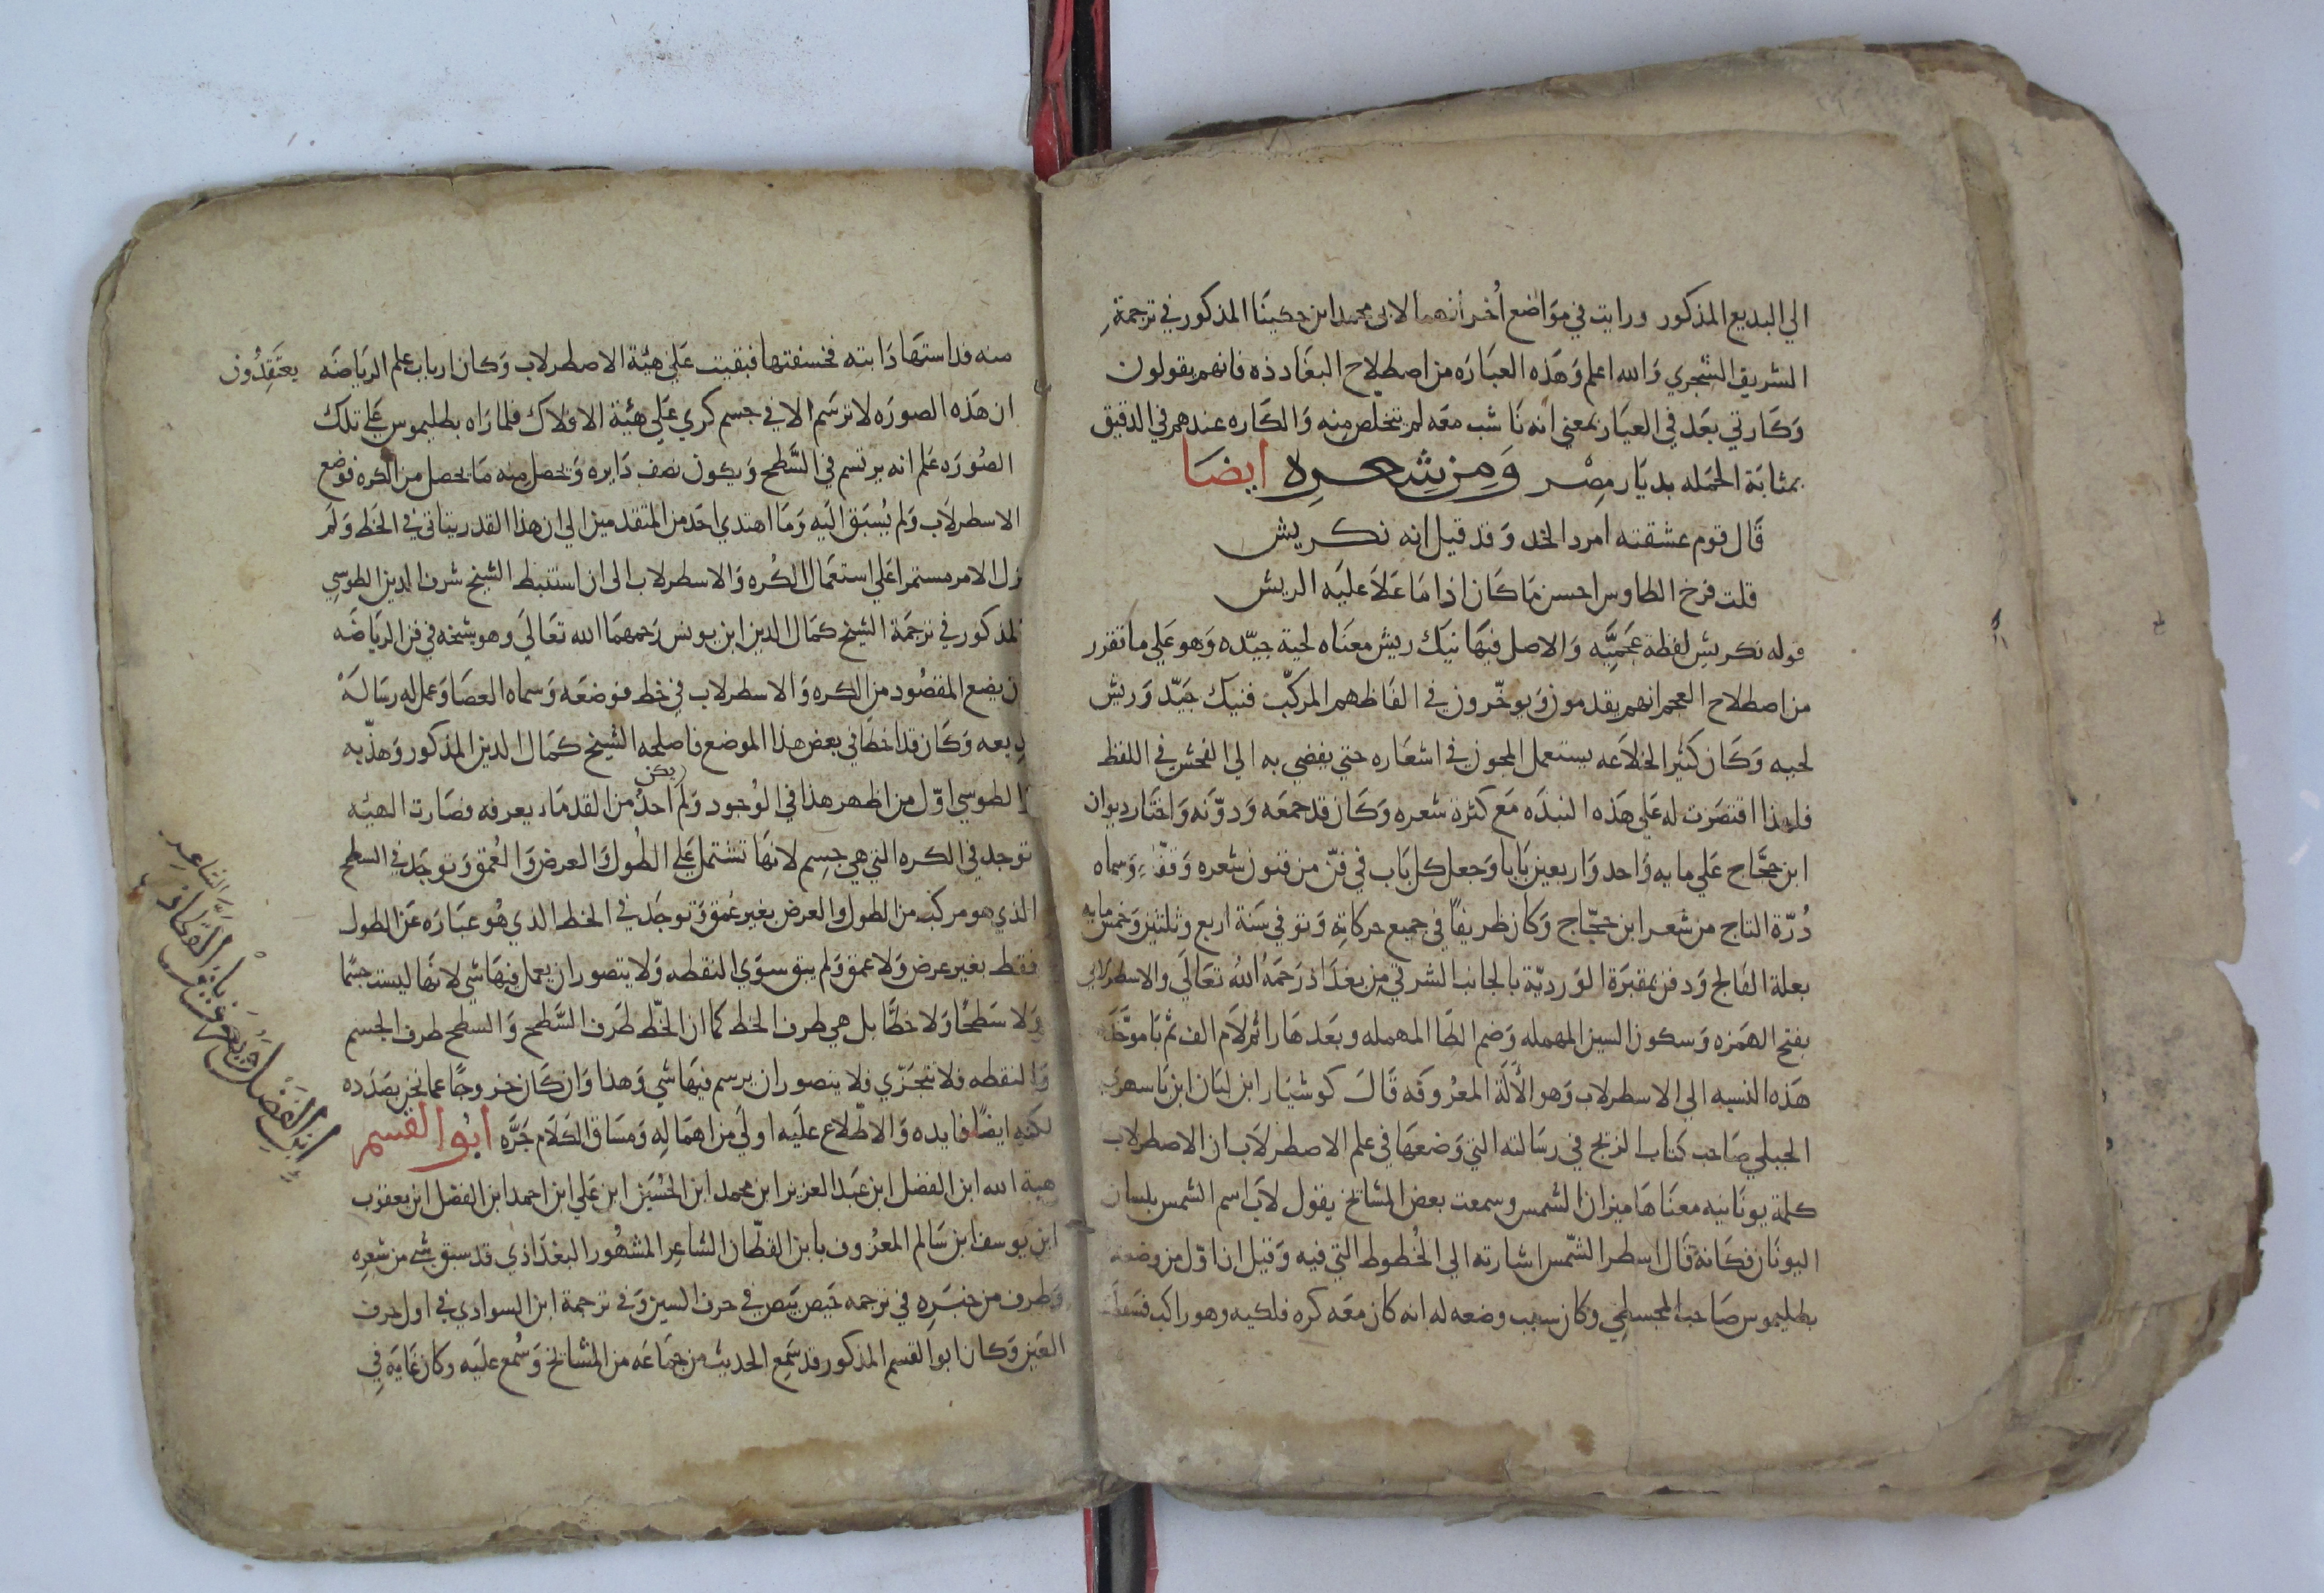 الي البديع المذكور ورايت في مواضع أخر أنهما لابي محمد ابن حكينا المذكور في ترجمة
الشريف الشجري والله اعلم وهذه العباره من اصطلاح البغاددذه فانهم يقولون
وكارتي بعد في العيار بمعني انه ناشب معه لم يتخلص منه والكاره عندهم في الدقيق
بمثابة الحمله بديار مصر ومن شعره ايضا
قال قوم عشقته امرد الخد وقد قيل انه نكريش
قلت فرخ الطاوس احسن ما كان اذا ما علا عليه الريش
قوله نكريش لفظة عجميه والاصل فيها نيك ريش معناه لحية جيده وهو علي ما تقرر
من اصطلاح العجم انهم يقدمون ويوخرون في الفاظهم المركبه فنيك جيد وريش
لحيه وكان كثير الخلاعه يستعمل المجون في اشعاره حتي يفضي به الي الفحش في اللفظ
فلهذا اقتصرت له علي هذه النبذه مع كثرة شعره وكان قد جمعه ودونه واختار ديوان
ابن حجاج علي مايه واحد واربعين بابا وجعل كل باب في فن من فنون شعره وقفاه وسماه
درة التاج من شعر ابن حجاج وكان ظريفا في جميع حركاته وتوفي سنة اربع وثلثين وخمسمايه
بعلة الفالج ودفن بمقبرة الورديه بالجانب الشرقي من بغداذ رحمه الله تعالي والاسطرلابي
بفتح الهمزه وسكون السين المهمله وضم الطا المهمله وبعدها را ثم لام الف ثم با موحده
هذه النسبه الي الاسطرلاب وهو الألة المعروفه قال كوشيار ابن لبان ابن باسهري
الجيلي صاحب كتاب الزيج في رسالته التي وضعها في علم الاصطرلاب ان الاصطرلاب
كلمة يونانيه معناها ميزان الشمس وسمعت بعض المشائخ يقول لاب اسم الشمس بلسان
اليونان فكانه قال اسطر الشمس اشارته الي الخطوط التي فيه وقيل ان اول من وضعه
بطليموس صاحب المجسطي وكان سبب وضعه له انه كان معه كره فلكيه وهو راكب فسقطت
منه فداستها دابته فخسفتها فبقيت علي هيئة الاصطرلاب وكان ارباب علم الرياضه يعتقدون
ان هذه الصوره لا ترسم الا في جسم كري علي هيئة الافلاك فلما راه بطليموس علي تلك
الصوره علم انه يرتسم في السطح ويكون نصف دايره ويحصل منه ما يحصل من الكره فوضع
الاسطرلاب ولم يسبق اليه وما اهتدي احد من المتقدمين الي ان هذا القدر يتاتي في الخط ولم
يزل الامر مستمرا علي استعمال الكره والاسطرلاب الي ان استنبط الشيخ شرف الدين الطوسي
المذكور في ترجمة الشيخ كمال الدين ابن يونس رحمهما الله تعالي وهو شيخه في فن الرياضه
ان يضع المقصود من الكره والاسطرلاب في خط فوضعه وسماه العصا وعمل له رسالة
بديعه وكان قد اخطا في بعض هذا الموضع فاصلحه الشيخ كمال الدين المذكور وهذبه
والطوسي اول من اظهر هذا في الوجود ولم يكن احد من القدماء يعرفه فصارت الهيئه
توجد في الكره التي هي جسم لانها تشتمل علي الطول والعرض والعمق وتوجد في السطح
الذي هو مركب من الطول والعرض بغير عمق وتوجد في الخط الذي هو عباره عن الطول
فقط بغير عرض ولا عمق ولم يبق سوي النقطه ولا يتصور ان يعمل فيها شي لانها ليست جسما
ولا سطحا ولا خطا بل هي طرف الخط كما ان الخط طرف السطح والسطح طرف الجسم
والنقطه فلا تتجزي فلا يتصور ان يرسم فيها شي وهذا وان كان خروجا عما نحن بصدده
لكنه ايضا فايده والاطلاع عليه اولي من اهماله ومساق الكلام جره ابوا القسم
هبة الله ابن الفضل ابن عبد العزيز ابن محمد ابن الحسين ابن علي ابن احمد ابن الفضل ابن يعقوب
ابن يوسف ابن سالم المعروف بابن القطان الشاعر المشهور البغداذي قد سبق شي من شعره
وطرف من خبره في ترجمه حيص بيص في حرف السين وفي ترجمة ابن السوادي في اول حرف
العين وكان ابوا القسم المذكور قد سمع الحديث من جماعه من المشائخ وسمع عليه وكان غايه في
ابن الفضل المعروف بابن القطان الشاعر